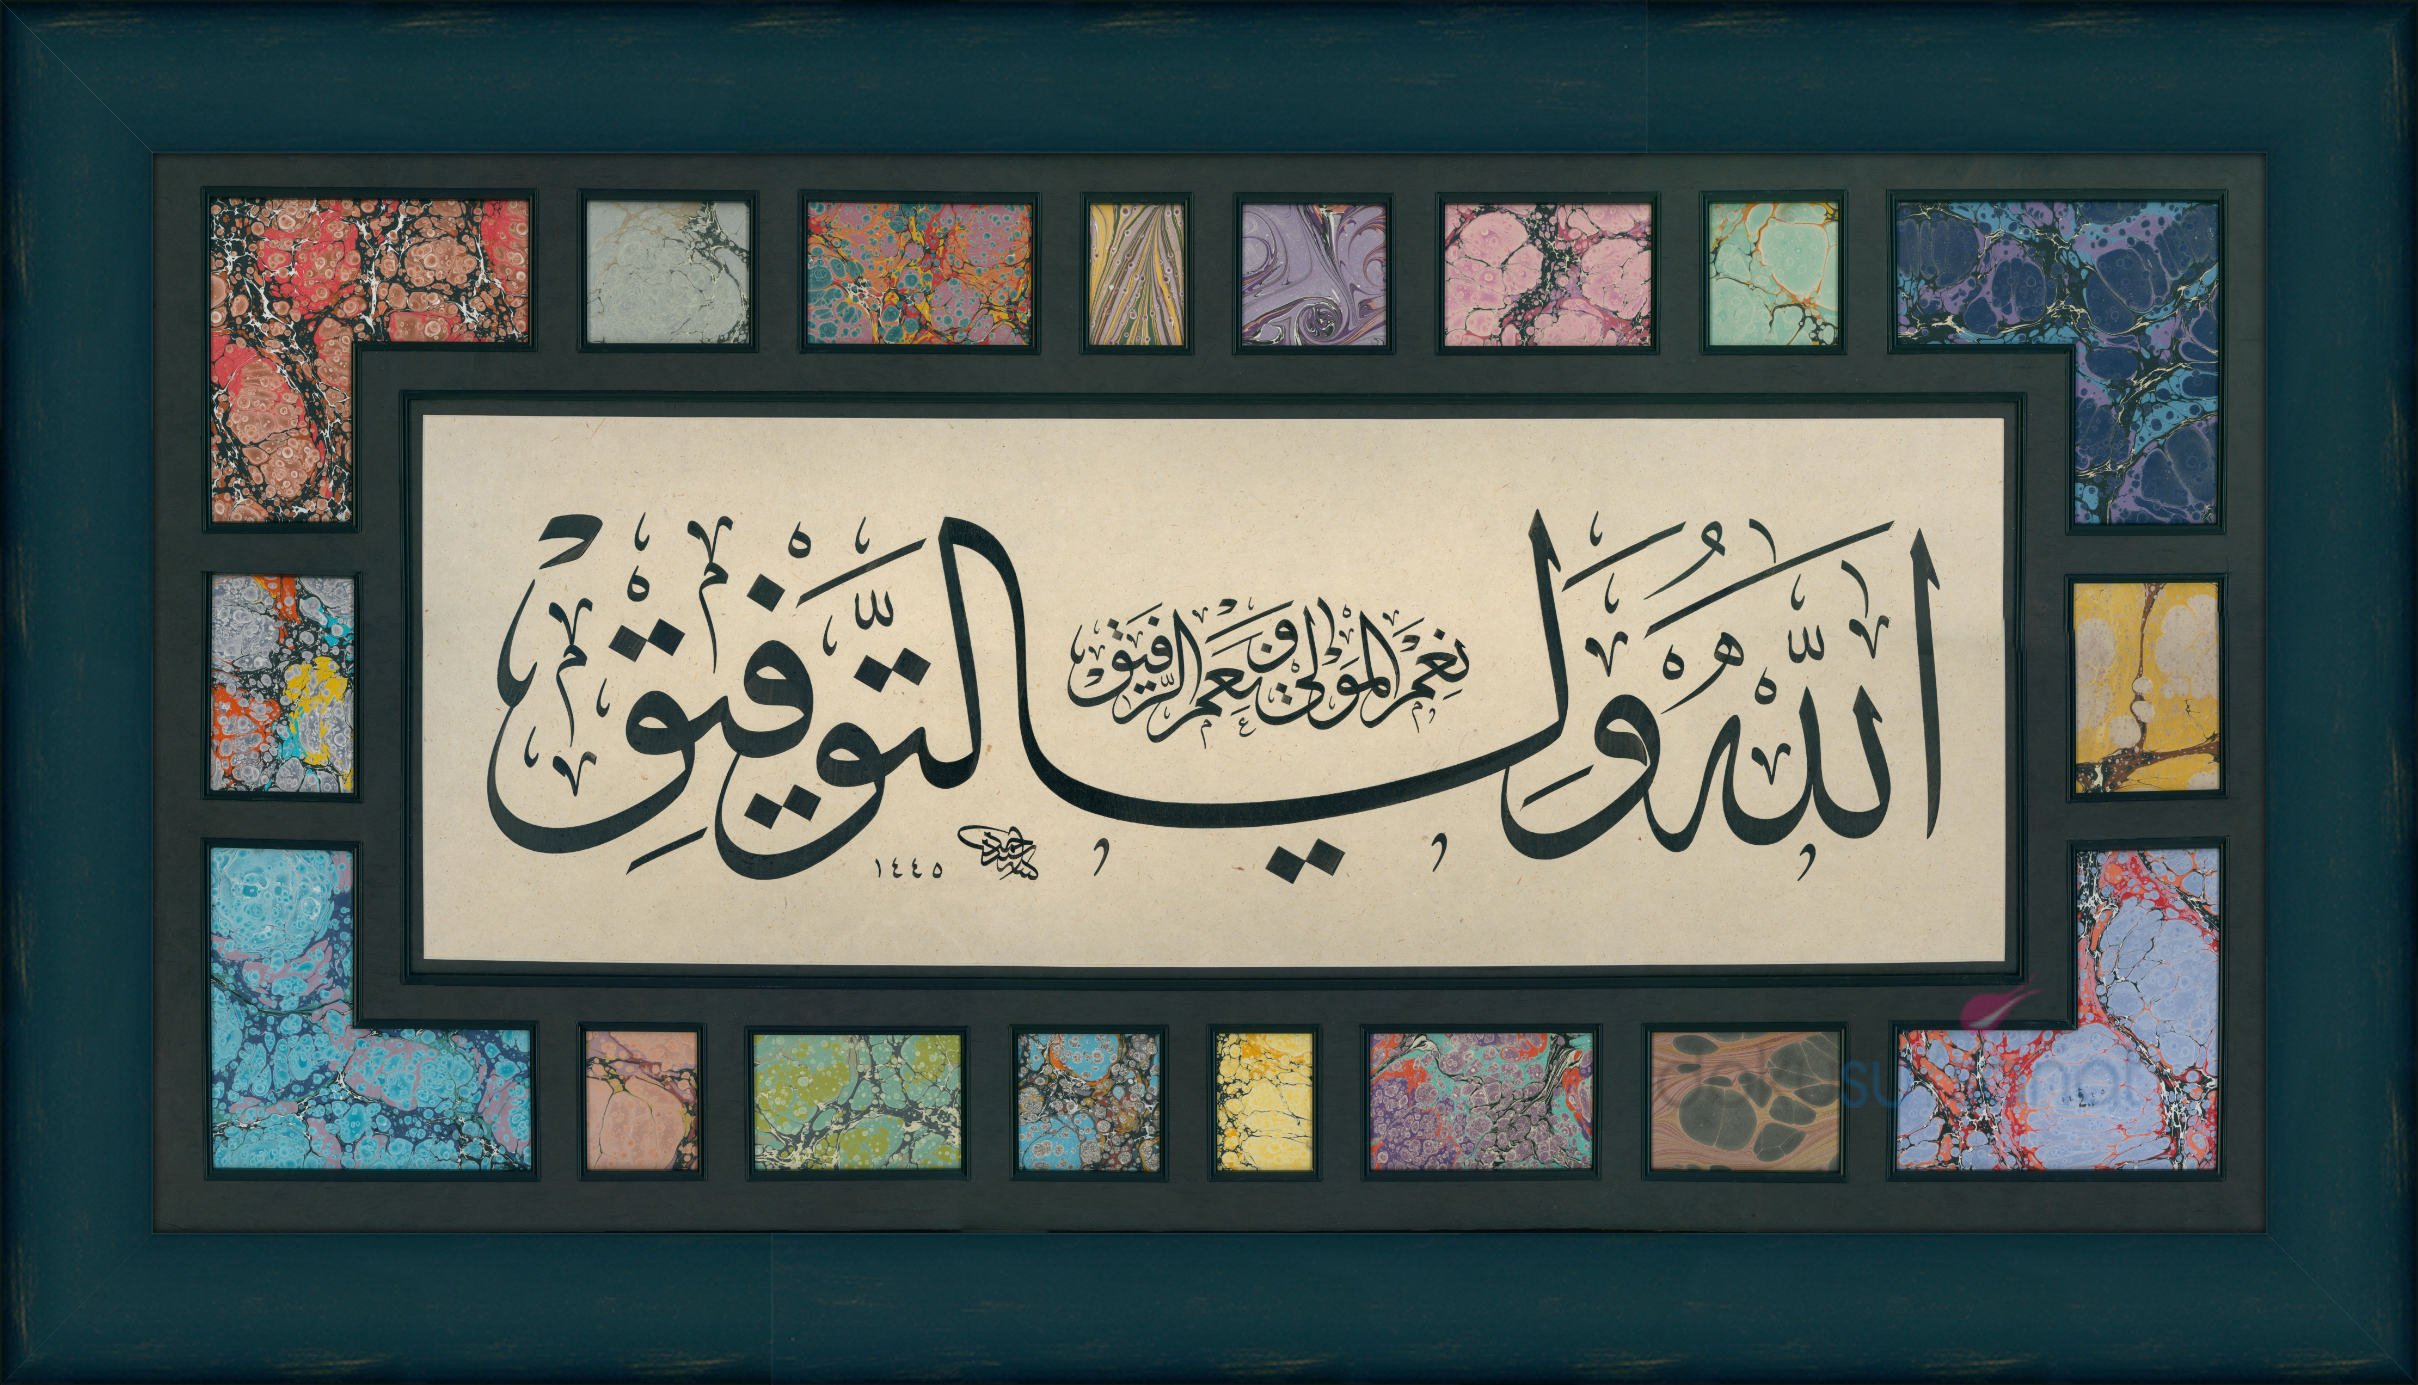 اللّٰهُ وَلِيُّ التَّوْفِيقْ
نِعْمَ الْمَوْلٰى وَنِعْمَ الرَّفِيقْ
١٤٤٥